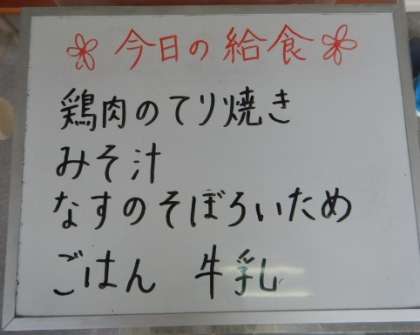 今日の給食
鶏肉のてり焼き
みそ汁
なすのそぼろいため
ごはん 牛乳